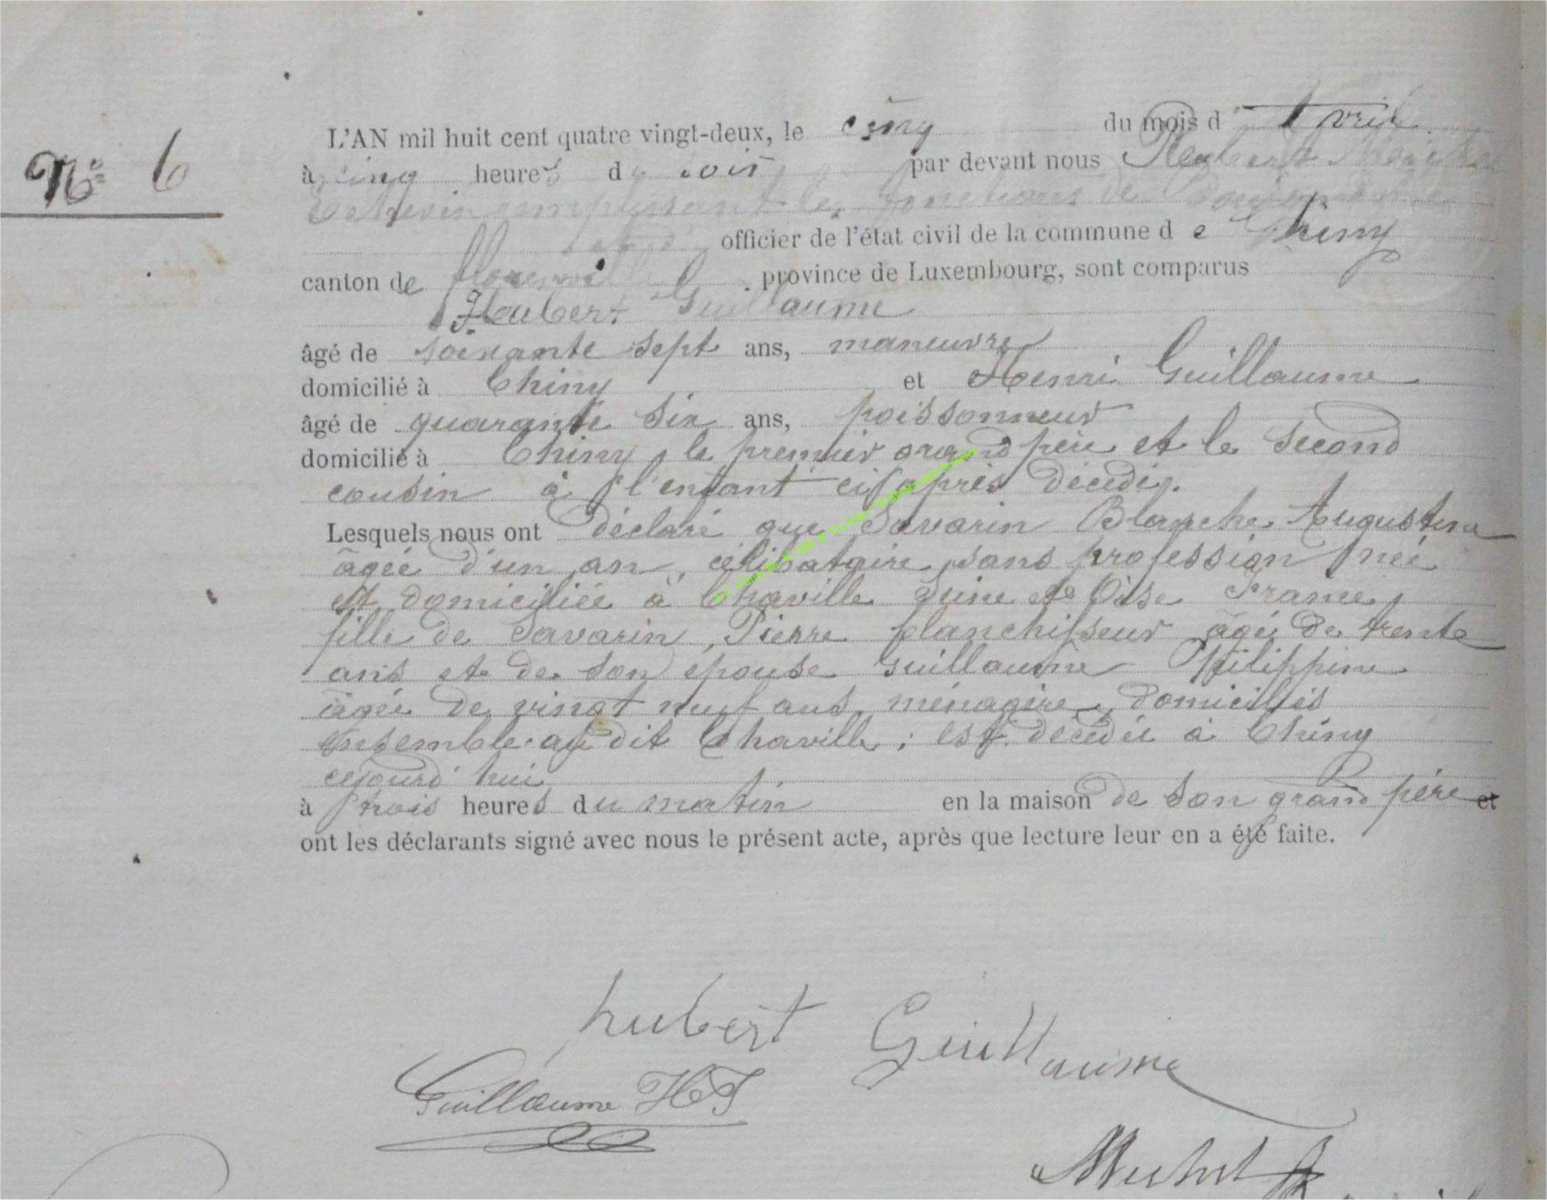 N° 6
L'AN mil huit cent quatre vingt-deux, le cinq du mois d'Avril
à cinq heures du soir par devant nous
Echevin remplissant les fonctions de
officier de l'état civil de la commune de Chiny
canton de florenville province de Luxembourg, sont comparus
Hubert Guillaume
âgé de soixante sept ans, maneuvre
domicilié à Chiny et Henri Guillaume
âgé de quarante six ans, poissonneur
domicilié à Chiny, le premier grand père et le second
cousin à l'enfant ci après décédé.
Lesquels nous ont déclaré que Savarin Blanche Augustine
âgée d'un an, célibataire, sans profession, née
et domiciliée à Chaville Seine et Oise France,
fille de Savarin, Pierre blanchisseur âgé de trente
ans et de son épouse Guillaume Philippine
âgée de vingt neuf ans, ménagère, domiciliés
ensemble au dit Chaville; est décédée à Chiny
cejourd'hui
à trois heures du matin en la maison de son grand père et
ont les déclarants signé avec nous le présent acte, après que lecture leur en a été faite.
hubert Guillaume
Guillaume HJ